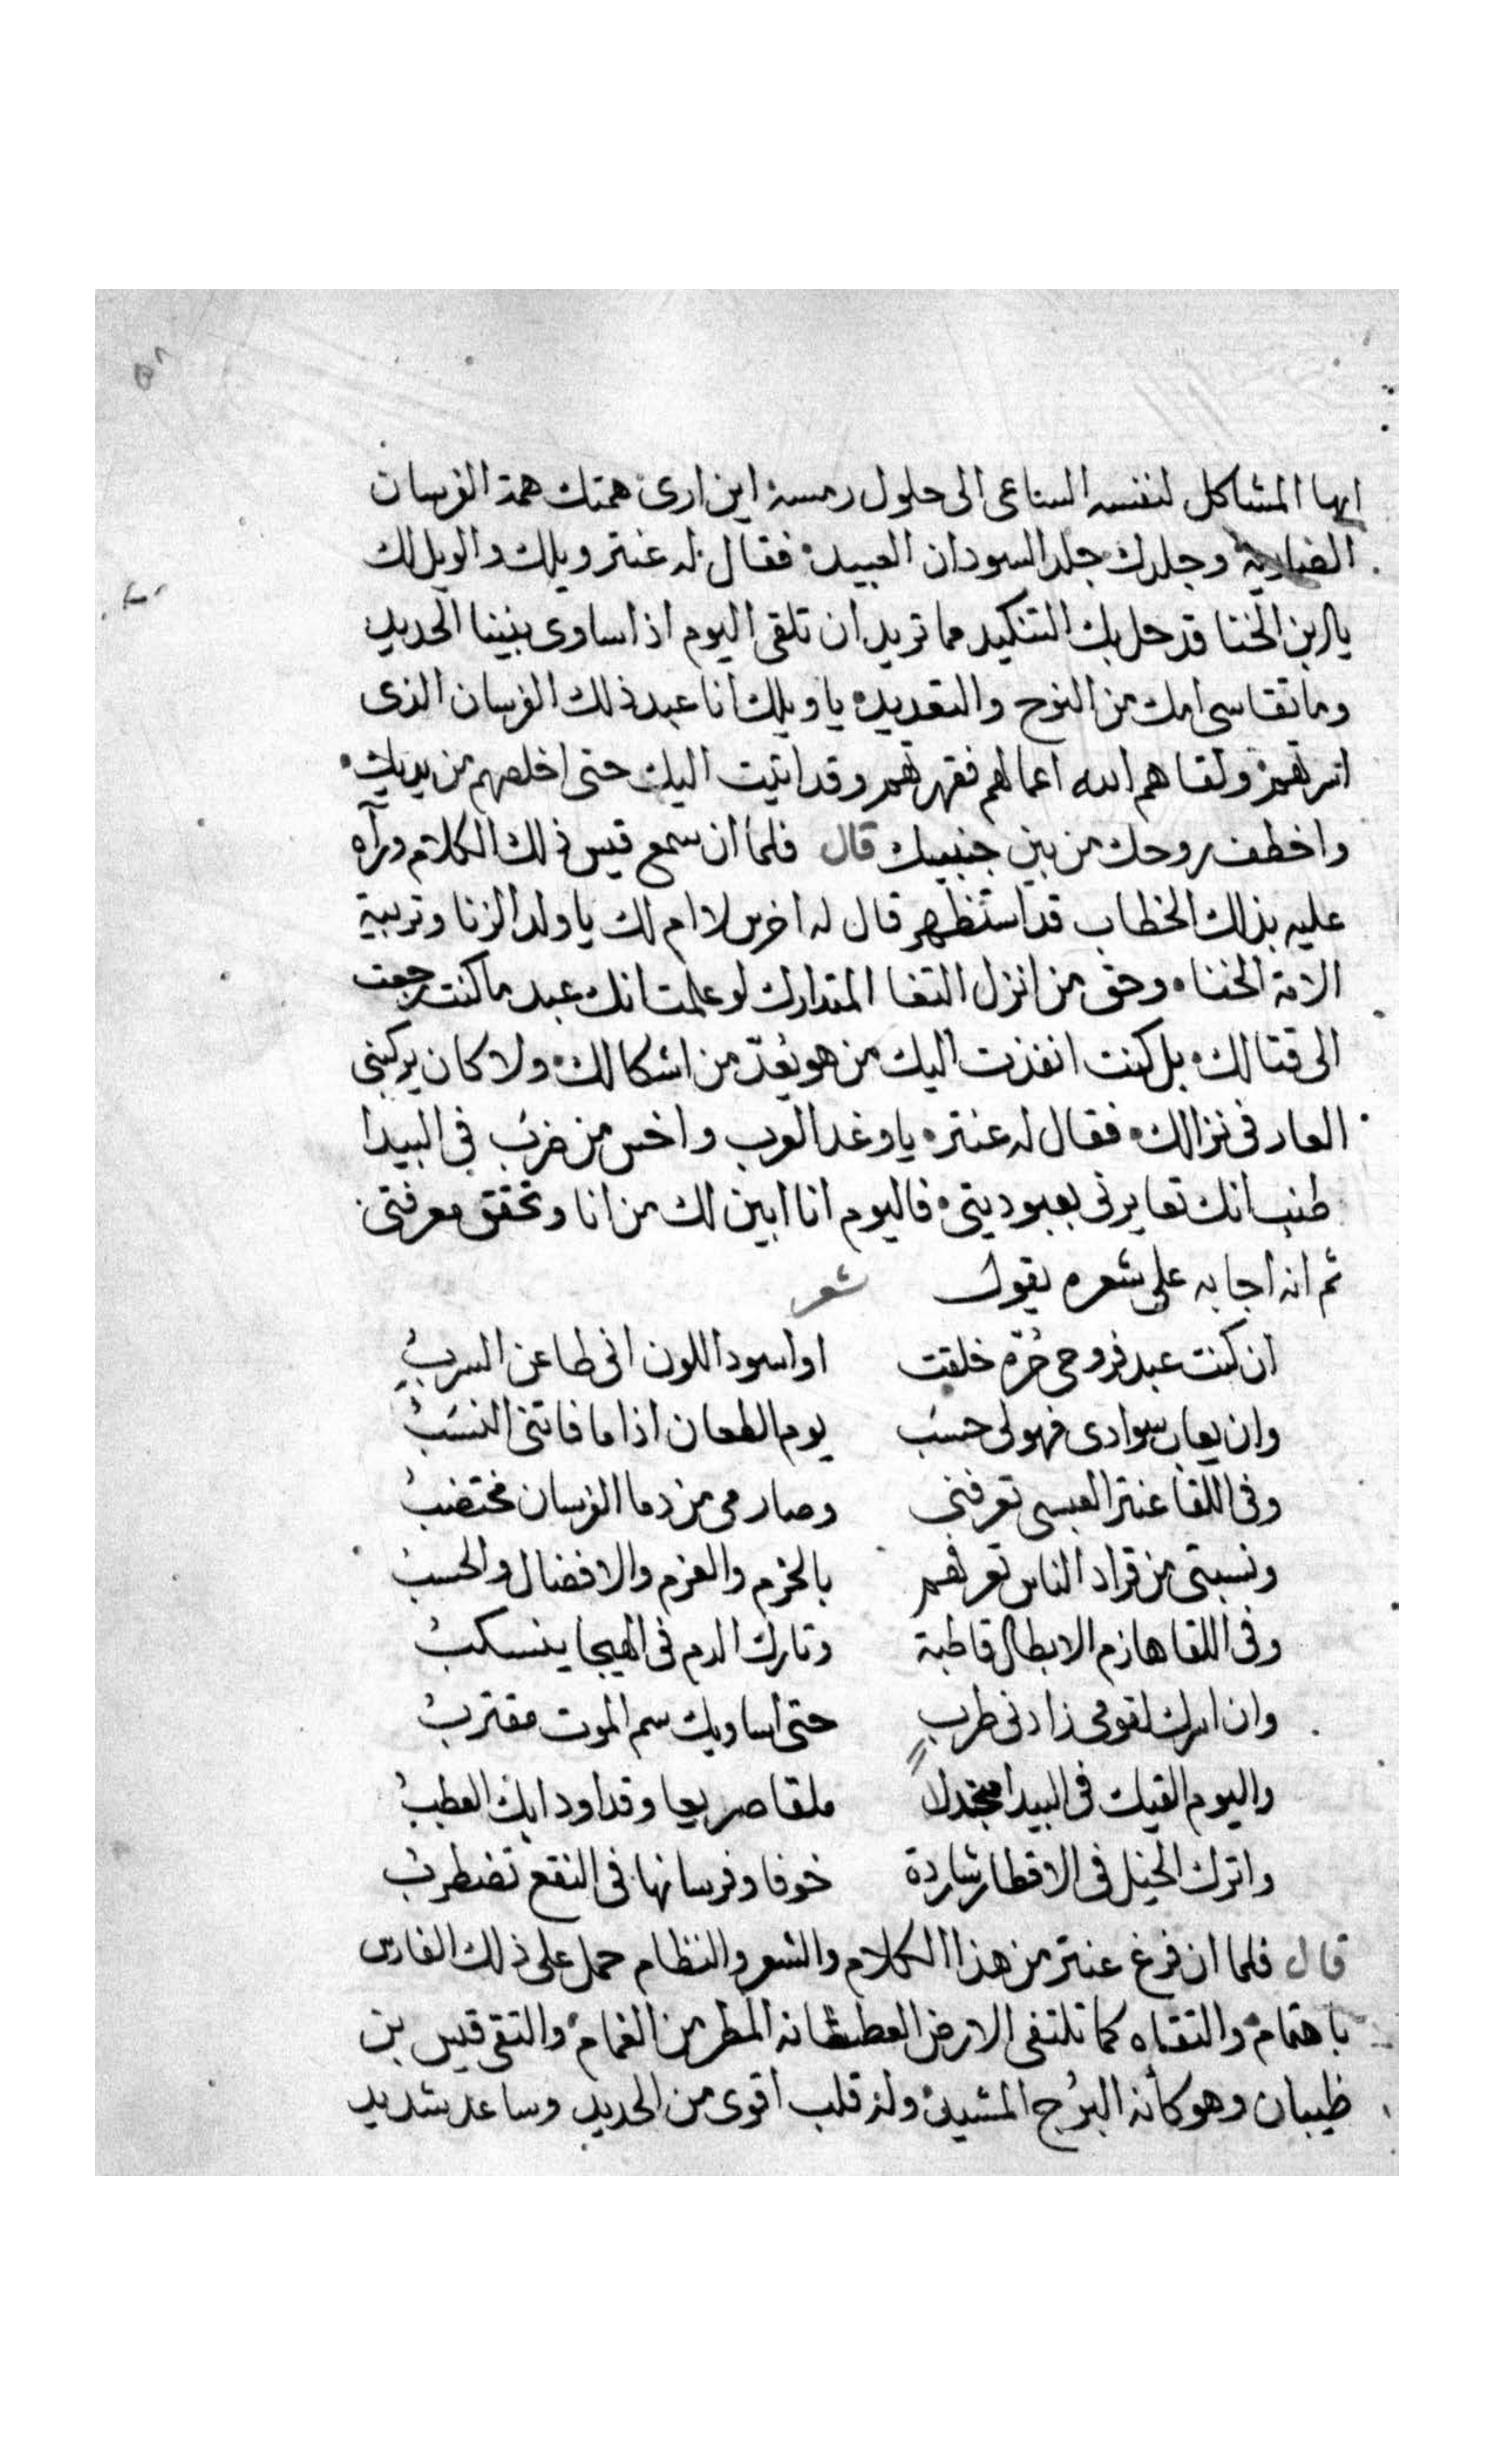 ايها المشاكل لنفسه الساعى الى حلول رمسه اين ارى همتك همة الفرسان
الضاريه وجلدك جلد السودان العبيد فقال له عنتر ويلك والويل لك
يا ابن الخنا قد حل بك التنكيد مما تريد ان تلقى اليوم اذا ساوى بيننا الحديد
وما تقاسى امك من النوح والتعديد يا ويلك انا عبد ذلك الفرسان الذى
اسرتهم ولقاهم الله اعمالهم فقهرتهم وقد اتيت اليك حتى اخلصهم من يديك
واخطف روحك من بين جنبيك قال فلما ان سمع قيس ذلك الكلام ورآه
عليه بذلك الخطاب قد استظهر قال له اخرس لا ام لك يا ولد الزنا وتربية
الامة الخنا وحق من انزل المتدارك لو علمت انك عبد ما كنت رجعت
الى قتالك بل كنت انفذت اليك من هو يُعَدّ من اشكالك ولا كان يركبنى
العار فى نزالك فقال له عنتر يا وغد العرب واخس من ضرب فى البيدا
طنب انك تعايرنى بعبوديتى فاليوم انا ابين لك من انا وتحقق معرفتى
ثم انه اجابه على شعره يقول شعر
ان كنت عبد فروحى حُرّه خلقت او اسود اللون انى طاعن السربُ
وان يعاب سوادى فهو لى حسَب يوم الطعان اذا ما فاتنى النسَبُ
وفى اللقا عنتر العبسى تعرفنى وصارمى من دما الفرسان مختضبُ
ونسبتى من قراد الناس تعرفهم بالحزم والعزم والافضال والحسب
وفى اللقا هازم الابطال قاطبة وتارك الدم فى الهيجا ينسكبُ
وان اسرك لقومى زادنى طرب حتى اساويك سم الموت مقتربُ
واليوم القيك فى البيدا منجدلاً ملقا صريعا وقد اودا بك العطبُ
واترك الخيل فى الاقطار شاردة خوفا وفرسانها فى النقع تضطربُ
قال فلما ان فرغ عنتر من هذا الكلام والشعر والنظام حمل على ذلك الفارس
باهتمام والتقاه كما تلتقى الارض العطشانه المطر من الغمام والتقى قيس بن
ظبيان وهو كأنه البرُج المشيد وله قلب اقوى من الحديد وساعد شديد